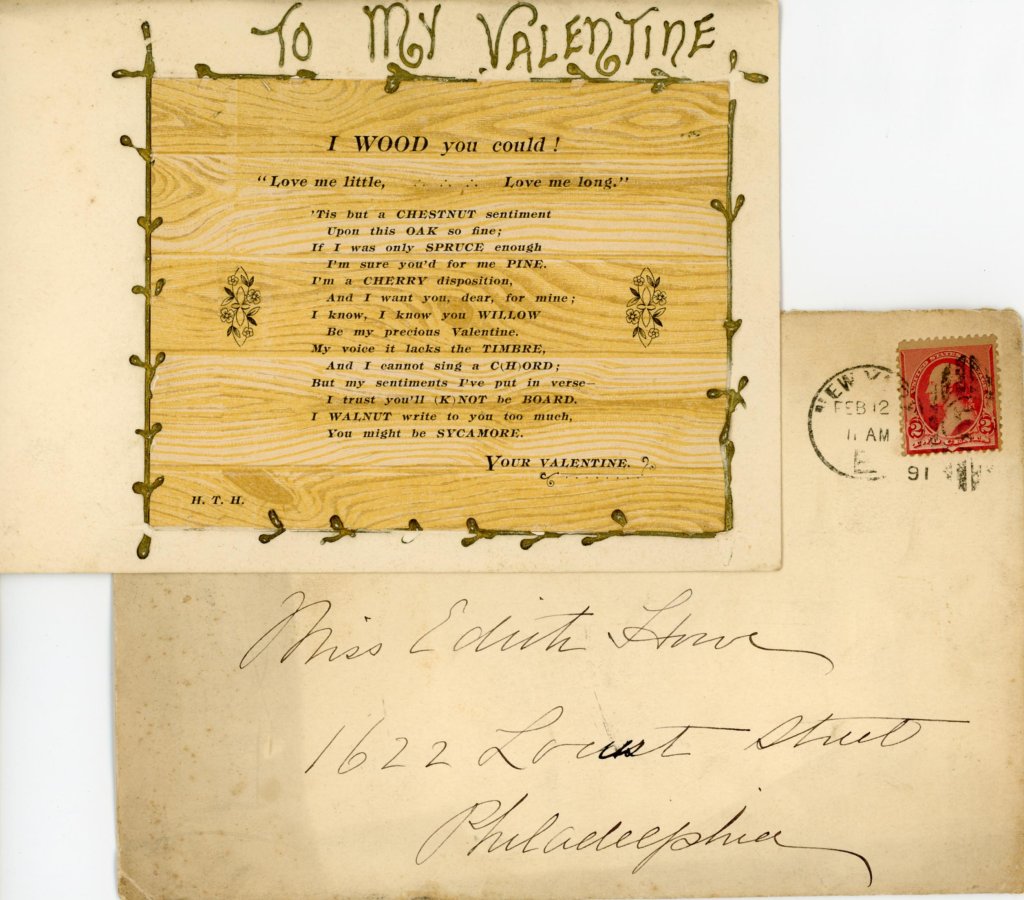 To My Valentine
I WOOD you could!
"Love me little, Love me long."
'Tis but a CHESTNUT sentiment
Upon this OAK so fine;
If I was only SPRUCE enough
I'm sure you'd for me PINE.
I'm a CHERRY disposition,
And I want you, dear, for mine;
I know, I know you WILLOW
Be my precious Valentine.
My voice it lacks the TIMBRE,
And I cannot sing a C(H)ORD;
But my sentiments I've put in verse—
I trust you'll (K)NOT be BOARD.
I WALNUT write to you too much,
You might be SYCAMORE.
YOUR VALENTINE.
H. T. H.
NEW YORK
FEB 12
11 AM
E
91
UNITED STATES
2 2
Miss Edith Howe
1622 Locust Street
Philadelphia